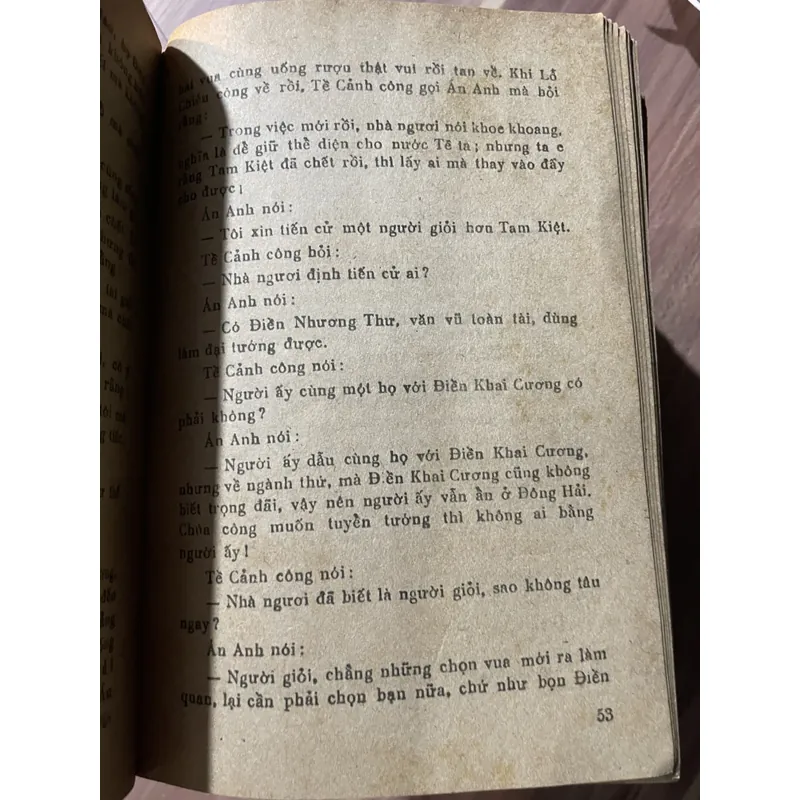 hai vua cùng uống rượu thật vui rồi tan về. Khi Lỗ
Chiêu công về rồi, Tề Cảnh công gọi Án Anh mà hỏi
rằng:
— Trong việc mới rồi, nhà ngươi nói khoe khoang,
nghĩa là để giữ thể diện cho nước Tề ta; nhưng ta e
rằng Tam Kiệt đã chết rồi, thì lấy ai mà thay vào đấy
cho được!
Án Anh nói:
— Tôi xin tiến cử một người giỏi hơn Tam Kiệt.
Tề Cảnh công hỏi:
— Nhà ngươi định tiến cử ai?
Án Anh nói:
— Có Điền Nhương Thư, văn vũ toàn tài, dùng
làm đại tướng được.
Tề Cảnh công nói:
— Người ấy cùng một họ với Điền Khai Cương có
phải không?
Án Anh nói:
— Người ấy dẫu cùng họ với Điền Khai Cương,
nhưng về ngành thứ, mà Điền Khai Cương cũng không
biết trọng đãi, vậy nên người ấy vẫn ần ở Đông Hải.
Chúa công muốn tuyển tướng thì không ai bằng
người ấy!
Tề Cảnh công nói:
— Nhà ngươi đã biết là người giỏi, sao không tâu
ngay?
Án Anh nói:
— Người giỏi, chẳng những chọn vua mới ra làm
quan, lại cần phải chọn bạn nữa, chứ như bọn Điền
53